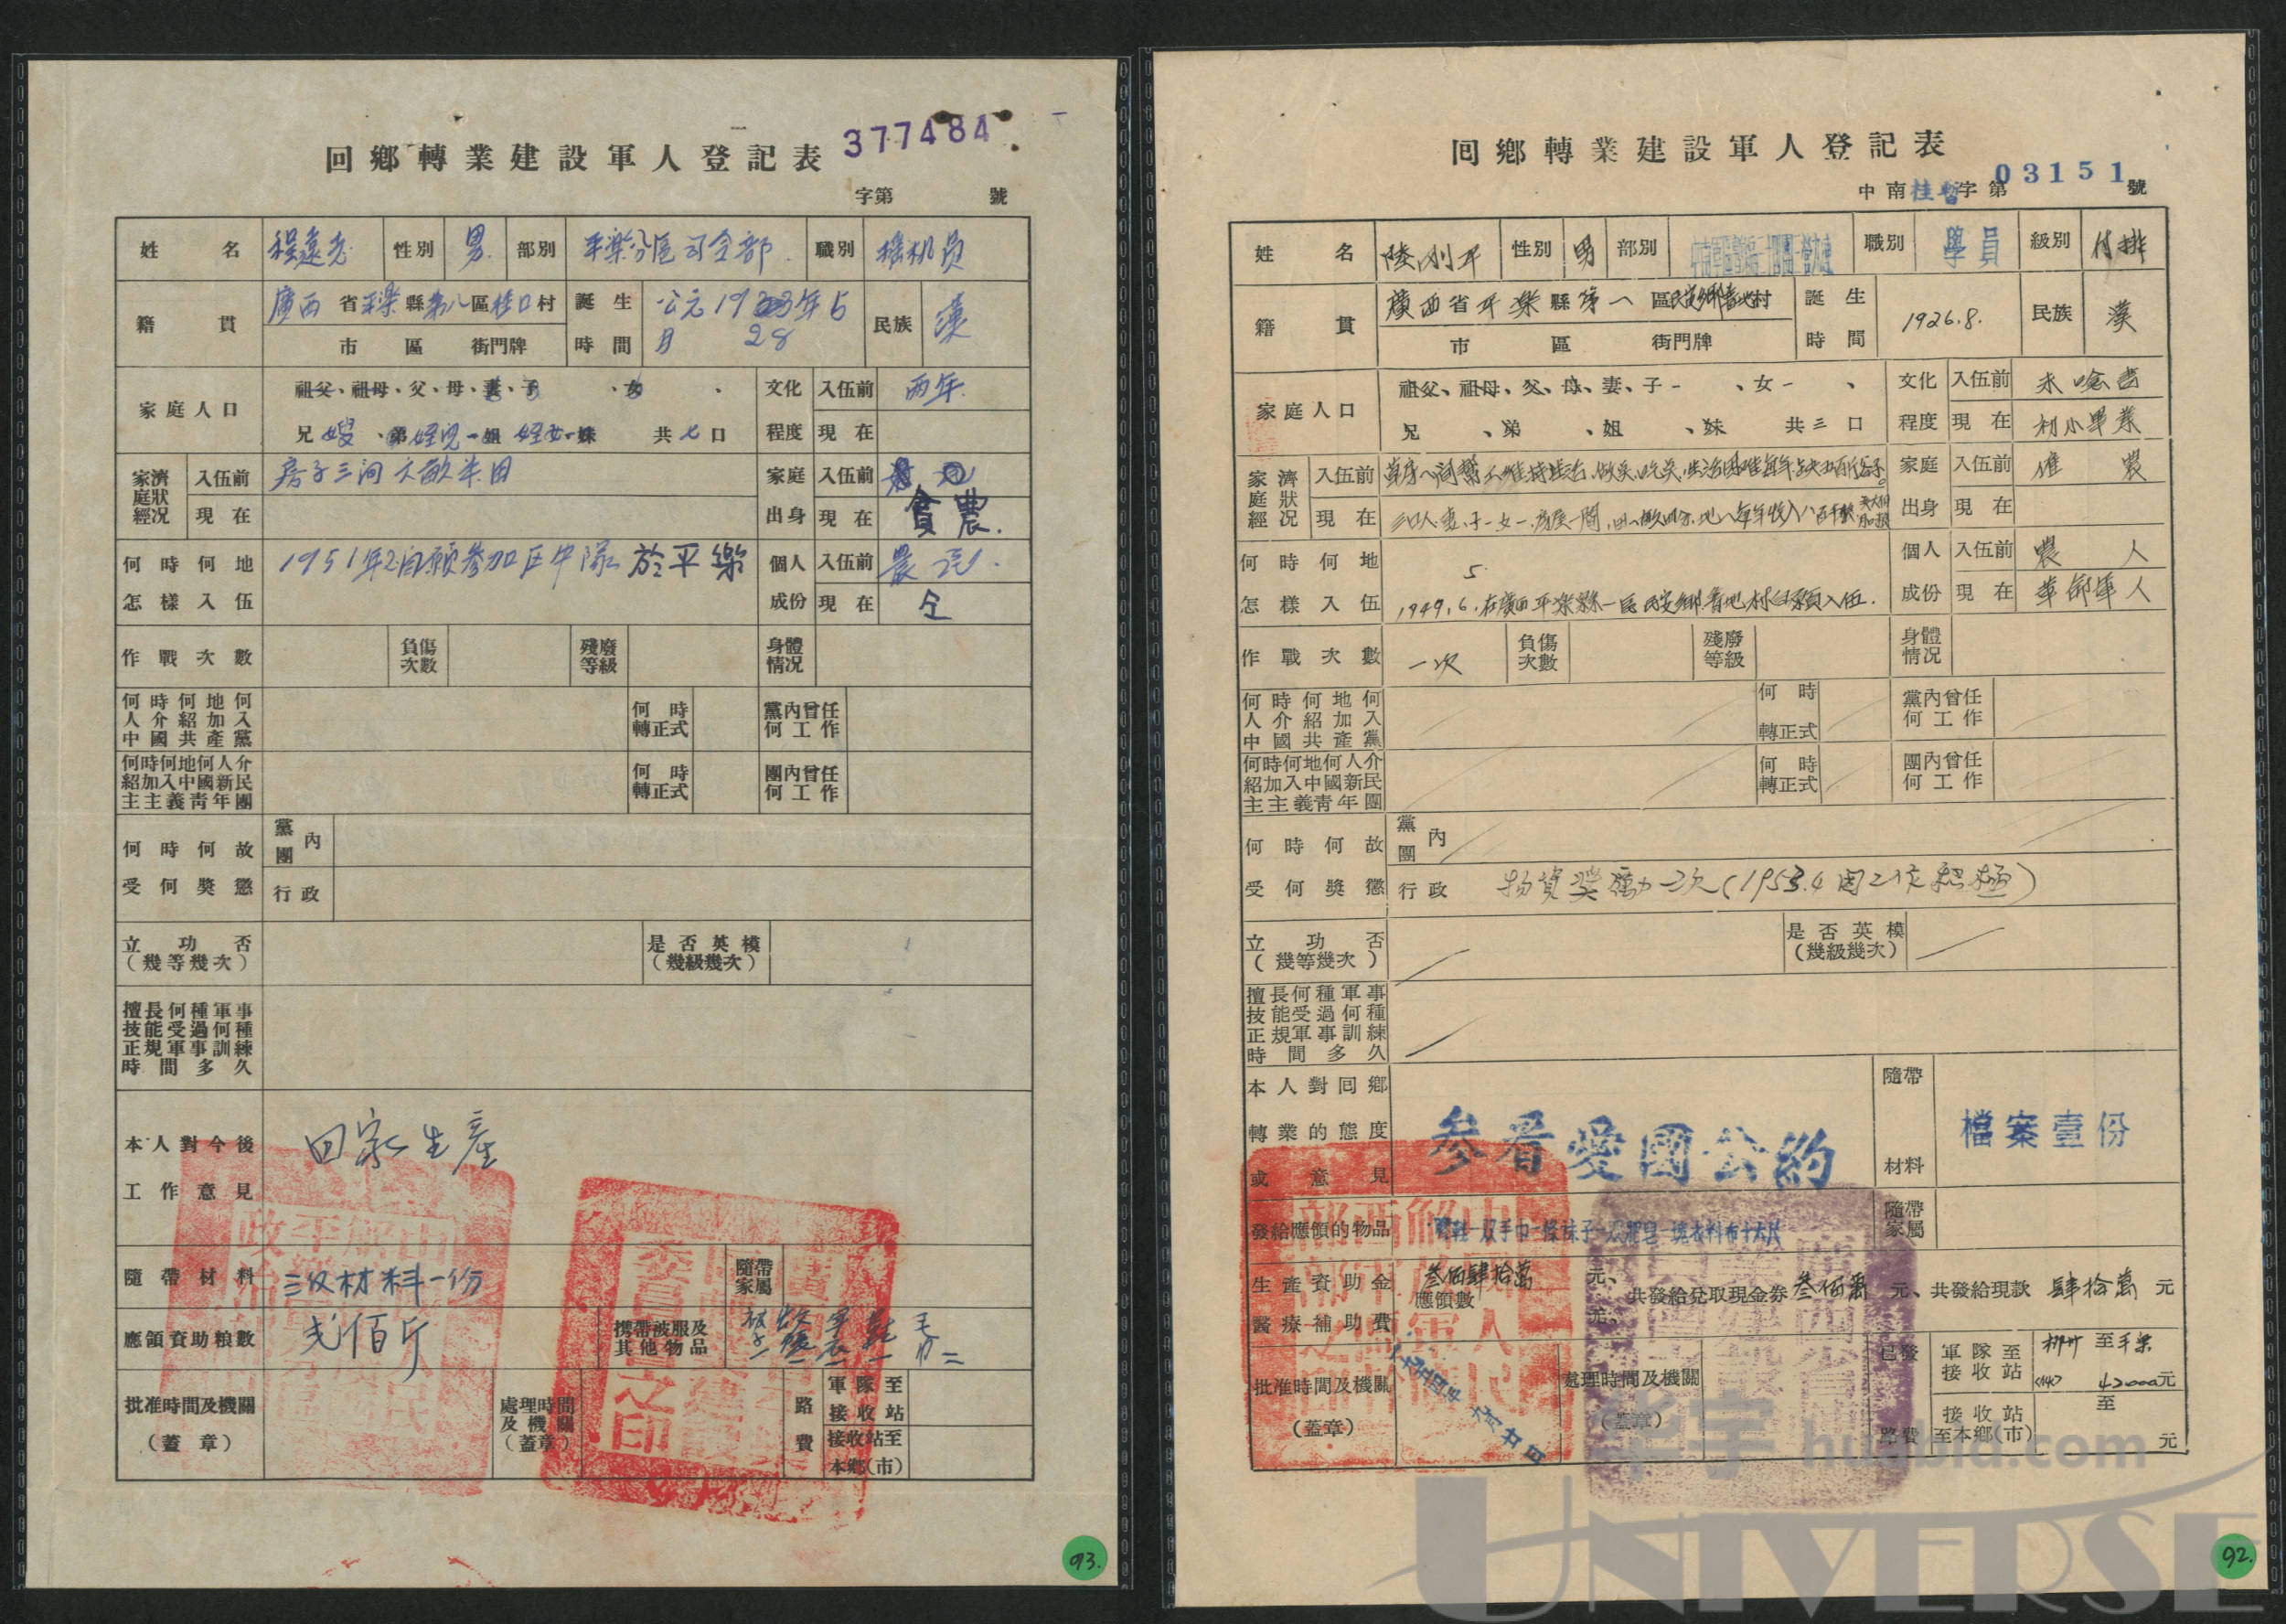 377484
回鄉轉業建設軍人登記表
字第 號
姓名 程遠志 性別 男 部別 平樂分區司令部 職別
籍貫 廣西省平樂縣第八區桂口村 誕生時間 公元1933年5月28 民族 漢
市 區 街門牌
家庭人口 祖父、祖母、父、母、妻、子 、女 、
兄嫂、弟姪兒一姐姪女一妹 共七口
文化程度 入伍前 兩年
現在
家庭經濟狀況 入伍前 房子三间六畝半田
現在
家庭出身 入伍前
現在 貧農.
何時何地怎樣入伍 1951年2自願參加区中隊於平樂
個人成份 入伍前 農民.
現在 仝
作戰次數 負傷次數 殘廢等級 身體情况
何時何地何人介紹加入中國共產黨 何時轉正式 黨內曾任何工作
何時何地何人介紹加入中國新民主主義靑年團 何時轉正式 團內曾任何工作
何時何故受何獎懲 黨團內
行政
立功否（幾等幾次） 是否英模（幾級幾次）
擅長何種軍事技能受過何種正規軍事訓練時間多久
本人對今後工作意見 回家生產
隨帶材料 三汉材料一份 隨帶家屬
應領資助粮數 弍佰斤 携帶被服及其他物品
批准時間及機關（蓋章） 處理時間及機關（蓋章） 路費 軍隊至接收站
接收站至本鄉(市)
93.
回鄉轉業建設軍人登記表
中南桂暫字第03151號
姓名 陸刚平 性別 男 部別 職別 學員 級別 付排
籍貫 廣西省平樂縣第一區民安鄉 村 誕生時間 1926.8. 民族 漢
市 區 街門牌
家庭人口 祖父、祖母、父、母、妻、子一 、女一 、
兄 、弟 、姐 、妹 共三口
文化程度 入伍前 未唸書
現在 初小畢業
家庭經濟狀況 入伍前
現在
家庭出身 入伍前 僱農
現在
何時何地怎樣入伍 1949.6.在廣西平樂縣一區民安鄉 村自願入伍.
5
個人成份 入伍前 農人
現在 革命軍人
作戰次數 一次 負傷次數 殘廢等級 身體情况
何時何地何人介紹加入中國共產黨 何時轉正式 黨內曾任何工作
何時何地何人介紹加入中國新民主主義靑年團 何時轉正式 團內曾任何工作
何時何故受何獎懲 黨團內
行政 物資獎勵一次(1953.4因工作积極)
立功否（幾等幾次） 是否英模（幾級幾次）
擅長何種軍事技能受過何種正規軍事訓練時間多久
本人對回鄉轉業的態度或意見 参看愛國公約 隨帶材料 檔案壹份
發給應領的物品 鞋一双手巾一條袜子一双肥皂一塊衣料布十六尺 隨帶家屬
生產資助金 應領數 叁佰肆拾萬元、共發給兌取現金券叁佰萬元、共發給現款肆拾萬元
醫療補助費 元、
批准時間及機關（蓋章） 一九五四年 月廿 日 處理時間及機關（蓋章） 已發路費 軍隊至接收站 柳州至平樂 42000元
接收站至本鄉(市) 至 元
华宇 huabid.com
UNIVERSE
92.